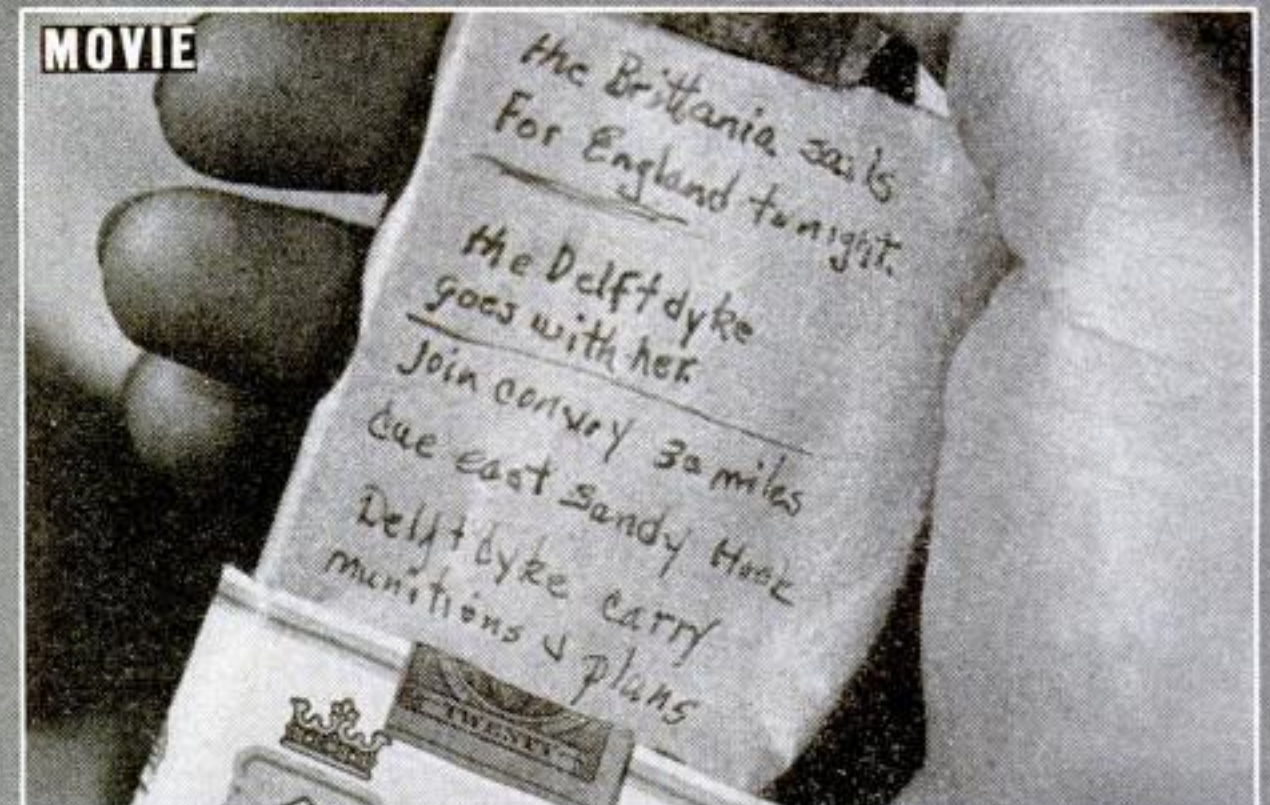 MOVIE
the Brittania sails
For England tonight.
the Delftdyke
goes with her.
Join convoy 30 miles
due east Sandy Hook
Delftdyke carry
munitions & plans
TWENTY